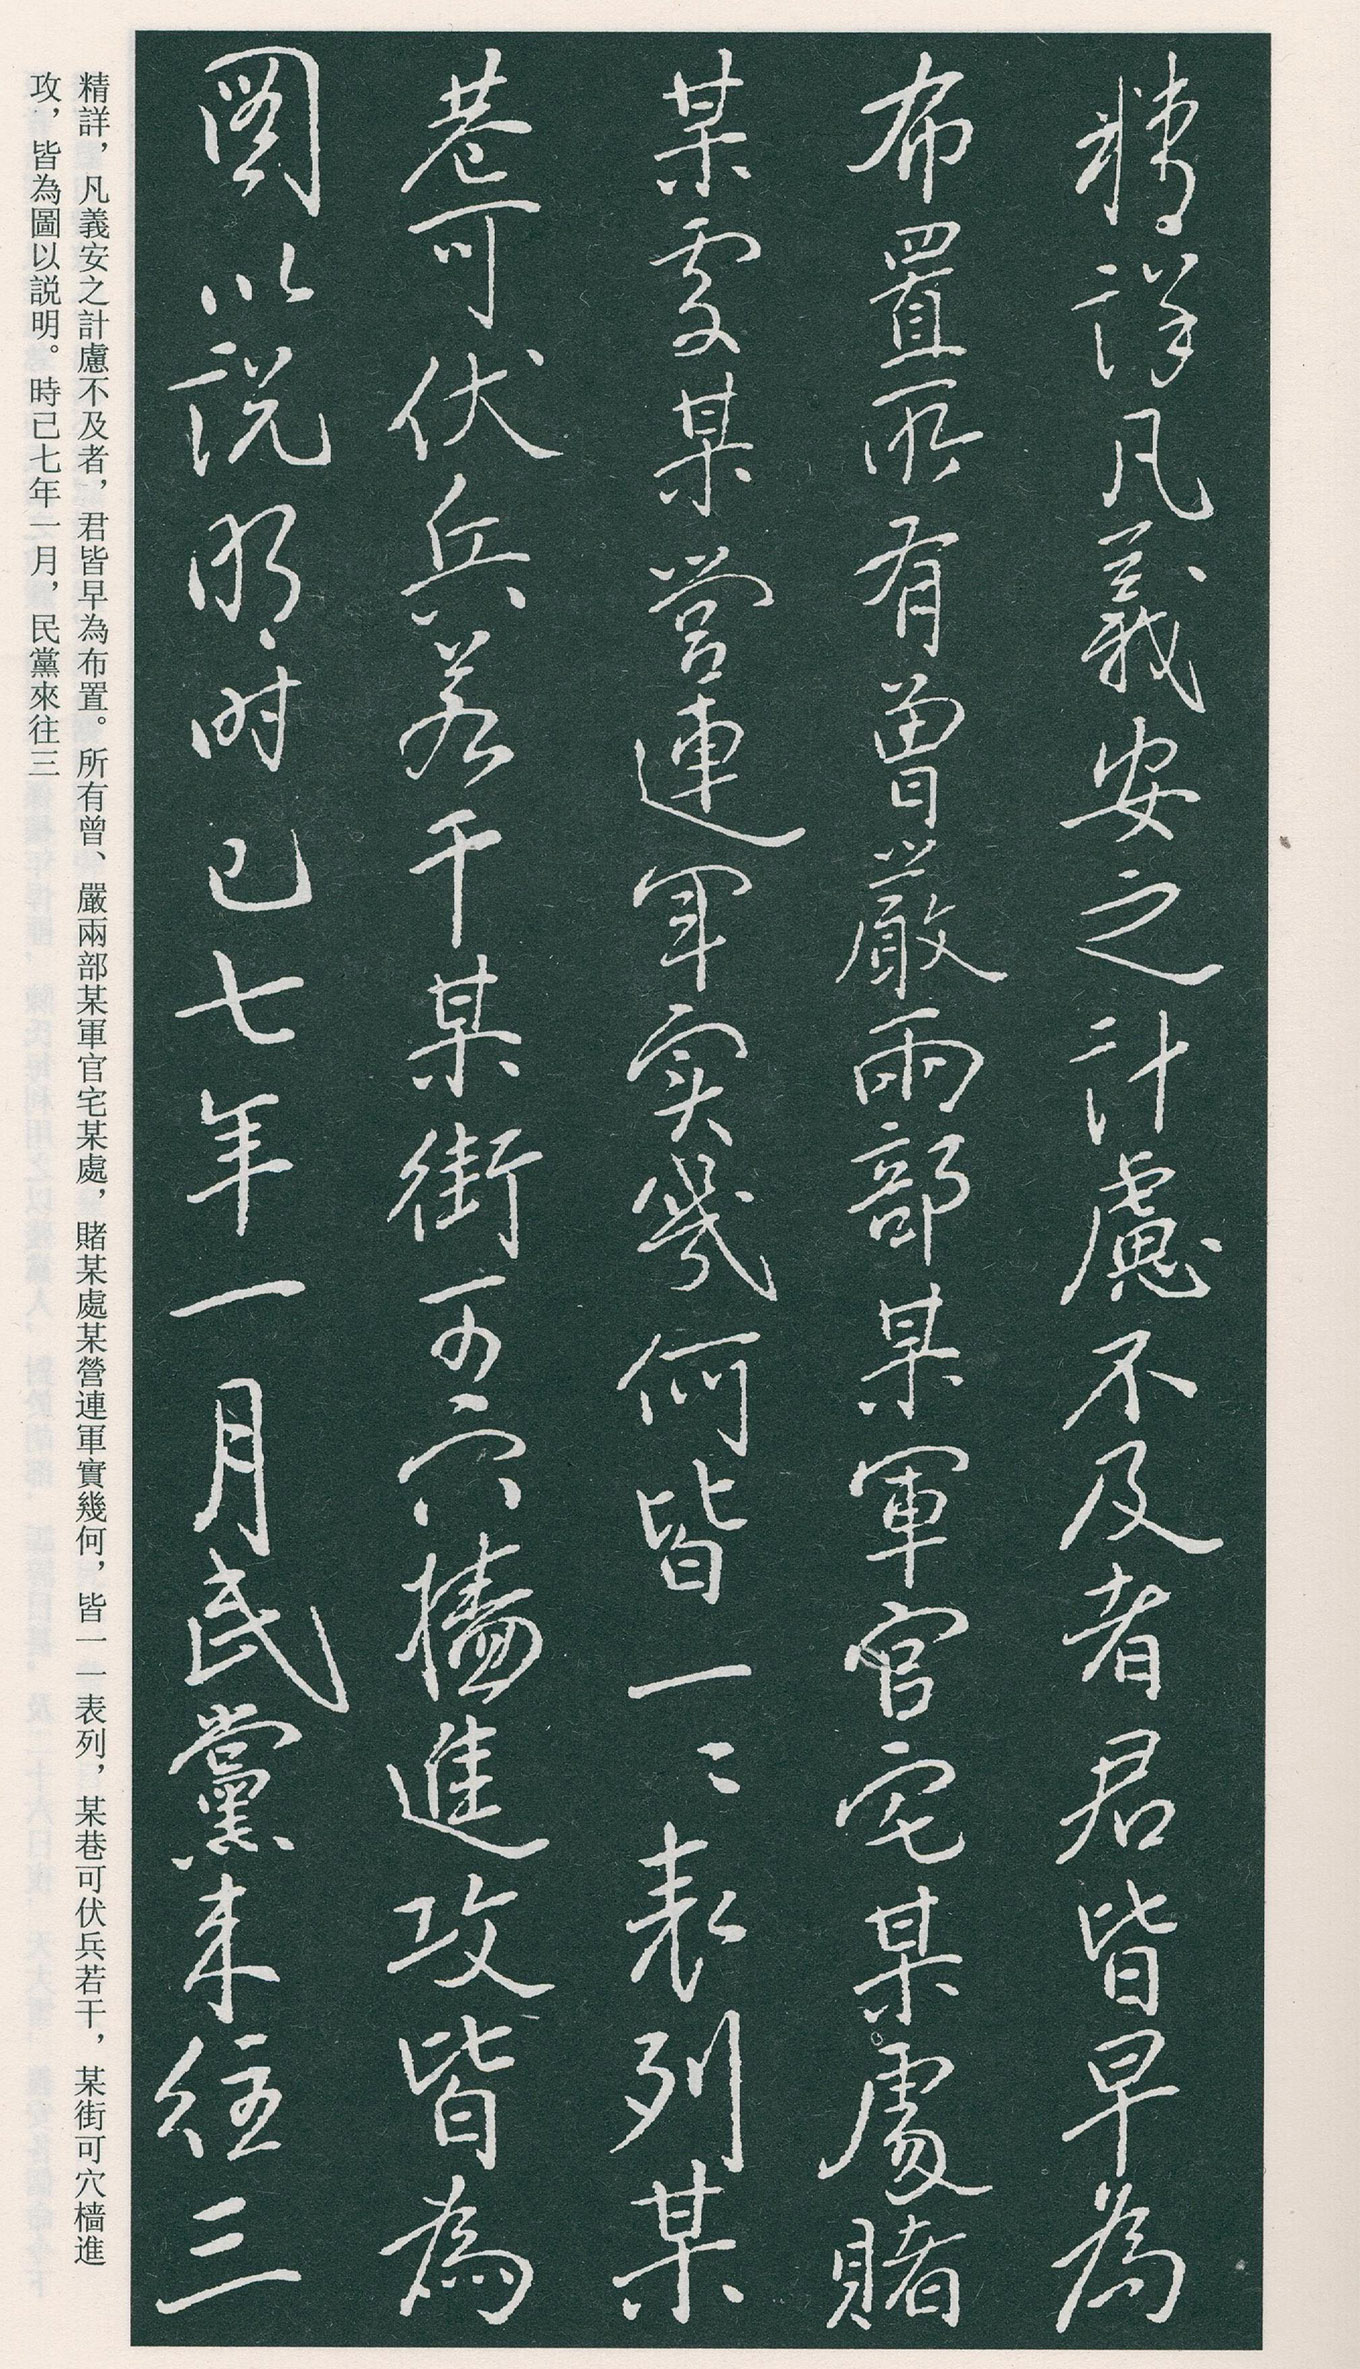 精詳凡義安之計慮不及者君皆早為
布置所有曾嚴兩部某軍官宅某處賭
某處某營連軍实幾何皆一〻表列某
巷可伏兵若干某街可穴檣進攻皆為
圖以説明时已七年一月民黨来往三
精詳，凡義安之計慮不及者，君皆早為布置。所有曾、嚴兩部某軍官宅某處，賭某處某營連軍實幾何，皆一一表列，某巷可伏兵若干，某街可穴檣進
攻，皆為圖以説明。時已七年一月，民黨來往三